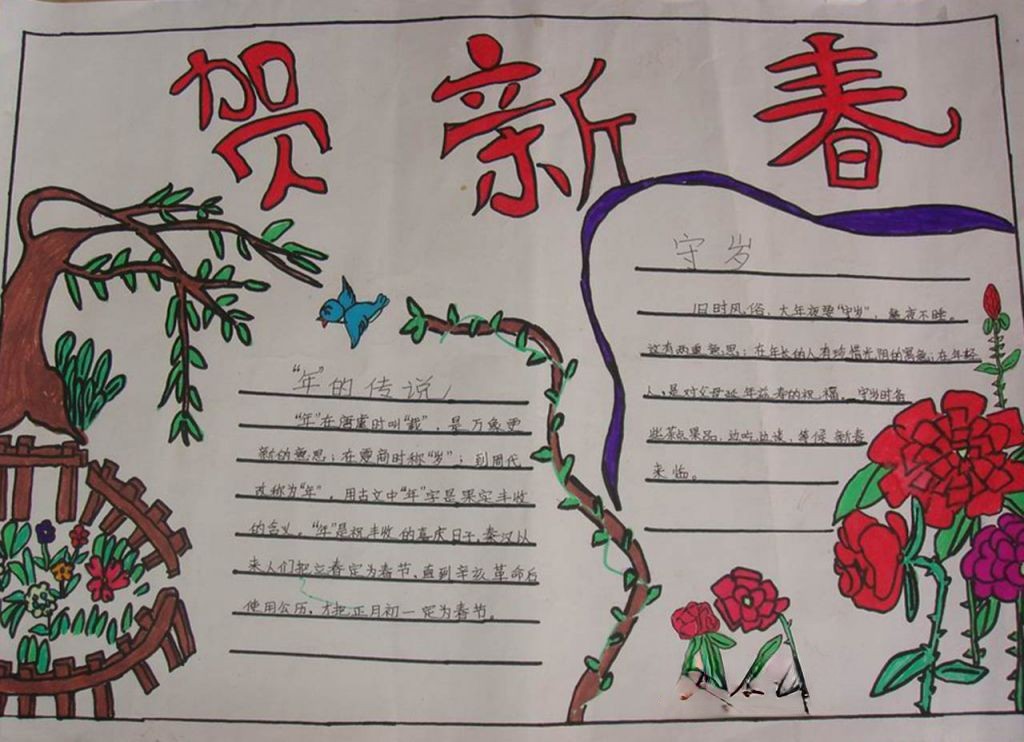 贺新春
"年"的传说
"年"在唐虞时叫"载"，是万象更
新的意思；在夏商时称"岁"；到周代
改称为"年"，用古文中"年"字是果实丰收
的含义。"年"是祝丰收的喜庆日子,秦汉以
来人们把立春定为春节，直到辛亥革命后
使用公历，才把正月初一定为春节。
守岁
旧时风俗，大年夜要"守岁"，整夜不睡。
这有两重意思；在年长的人有珍惜光阴的寓意；在年轻
人，是对父母延年益寿的祝福。守岁时备
些茶点果品，边吃边谈，等候新春
来临。